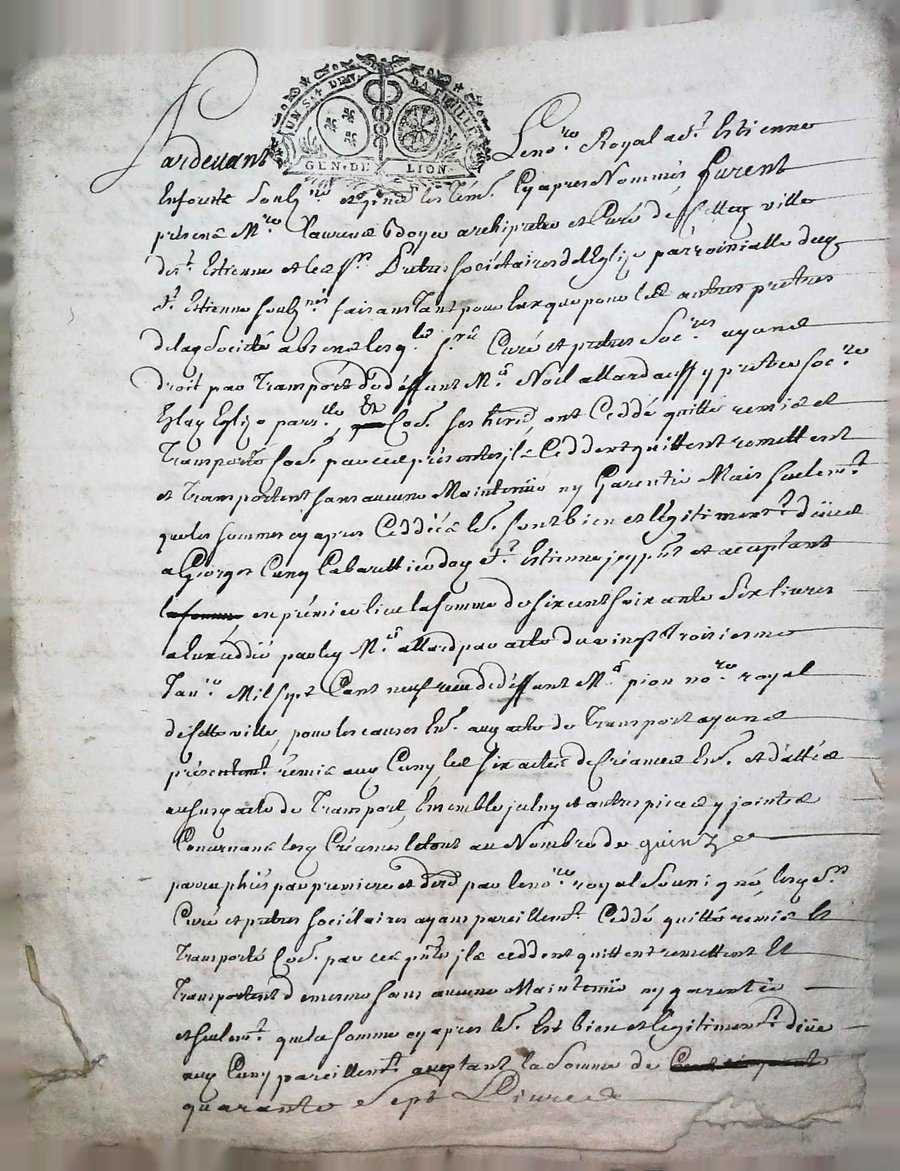 UN S. 4 DEN. LA FEUILLE
GEN. DE LION.
Pardevant Le no.re Royal a S.t Estienne
En forests soubz.né et présens les tém. Cy apres Nommés furent
présens M.re Laurens archiprestre et Curé de cette ville
de S.t Estienne et les S.rs Prestres sociétaires de l'Eglize parroissialle dud.
S.t Estienne soubz.nés faisans Tant pour eux que pour les autres prêtres
de lad. société absens lesq.ls S.rs Curé et prêtres Soc.res ayans
droit par Transport de déffunt M.re Noel allard aussy prêtre soc.re
En lad. Eglize parr.lle, ont Ceddé quitté remis et
Transporté Co.e par ces présentes ils Ceddent quittent remettent
et Transportent sans aucune Maintenüe ny Garentie Mais seulem.t
que les sommes cy apres Ceddées sont bien et légitimem.t dües
a George Cuny Cabarettier dud. S.t Estienne icy pnt et acceptant
la somme en prémier lieu la somme de six cent soixante six livres
a luy ceddée par led. M.re allard par acte du vingt Troisiesme
Janv.r Mil sept Cent neuf receu de déffunt M.re pion no.re royal
de cette ville, pour les causes aud. acte de Transport ayans
présentem.t rémis aud. Cuny les six actes de Créances et dattés
au susd. acte de Transport, Ensemble et autres pieces y jointes
Concernans lesd. Créances le tout au Nombre de quinze
paraphés par premiere et der.e par le no.re royal Soussigné, lesq. S.rs
Curé et prêtres sociétaires ayans pareillem.t Ceddé quitté remis et
Transporté Co.e par ces pntes ils ceddent quittent remettent et
Transportent de mesme sans aucune Maintenüe ny garentie
et seulem.t que la somme cy apres Est bien et légitimem.t düe
aud. Cuny pareillem.t acceptant la somme de
quarante sept Livres